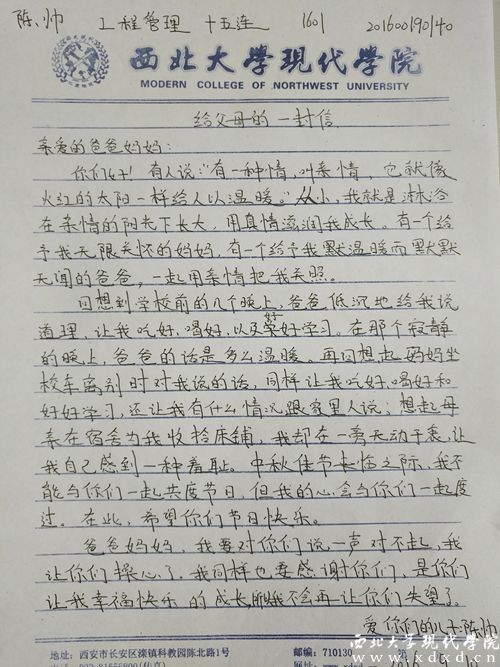 陈帅 工程管理 十五连 1601 2016001901040
西北大學現代學院
MODERN COLLEGE OF NORTHWEST UNIVERSITY
给父母的一封信
亲爱的爸爸妈妈：
你们好！有人说："有一种情，叫亲情，它就像
火红的太阳一样给人以温暖。"从小，我就是淋浴
在亲情的阳光下长大，用真情滋润我成长。有一个给
予我无限关怀的妈妈，有一个给予我默温暖而默默
无闻的爸爸，一起用亲情把我关照。
回想到学校前的几个晚上，爸爸低沉地给我说
道理，让我吃好、喝好、以及好好学习。在那个寂静
的晚上，爸爸的话是多么温暖。再回想起妈妈坐
校车离别时对我说的话，同样让我吃好、喝好和
好好学习，还让我有什么情况跟家里人说；想起母
亲在宿舍为我收拾床铺，我却在一旁无动于衷，让
我自己感到一种羞耻。中秋佳节来临之际，我不
能与你们一起共度节日，但我的心会与你们一起度
过。在此，希望你们节日快乐。
爸爸妈妈，我要对你们说一声对不起，我
让你们操心了。我同样也要感谢你们，是你们
让我幸福快乐的成长，我不会再让你们失望了。
爱你们的儿子陈帅
地址：西安市长安区滦镇科教园陈北路1号 邮编：710130
西北大学现代学院
www.xdxd.cn